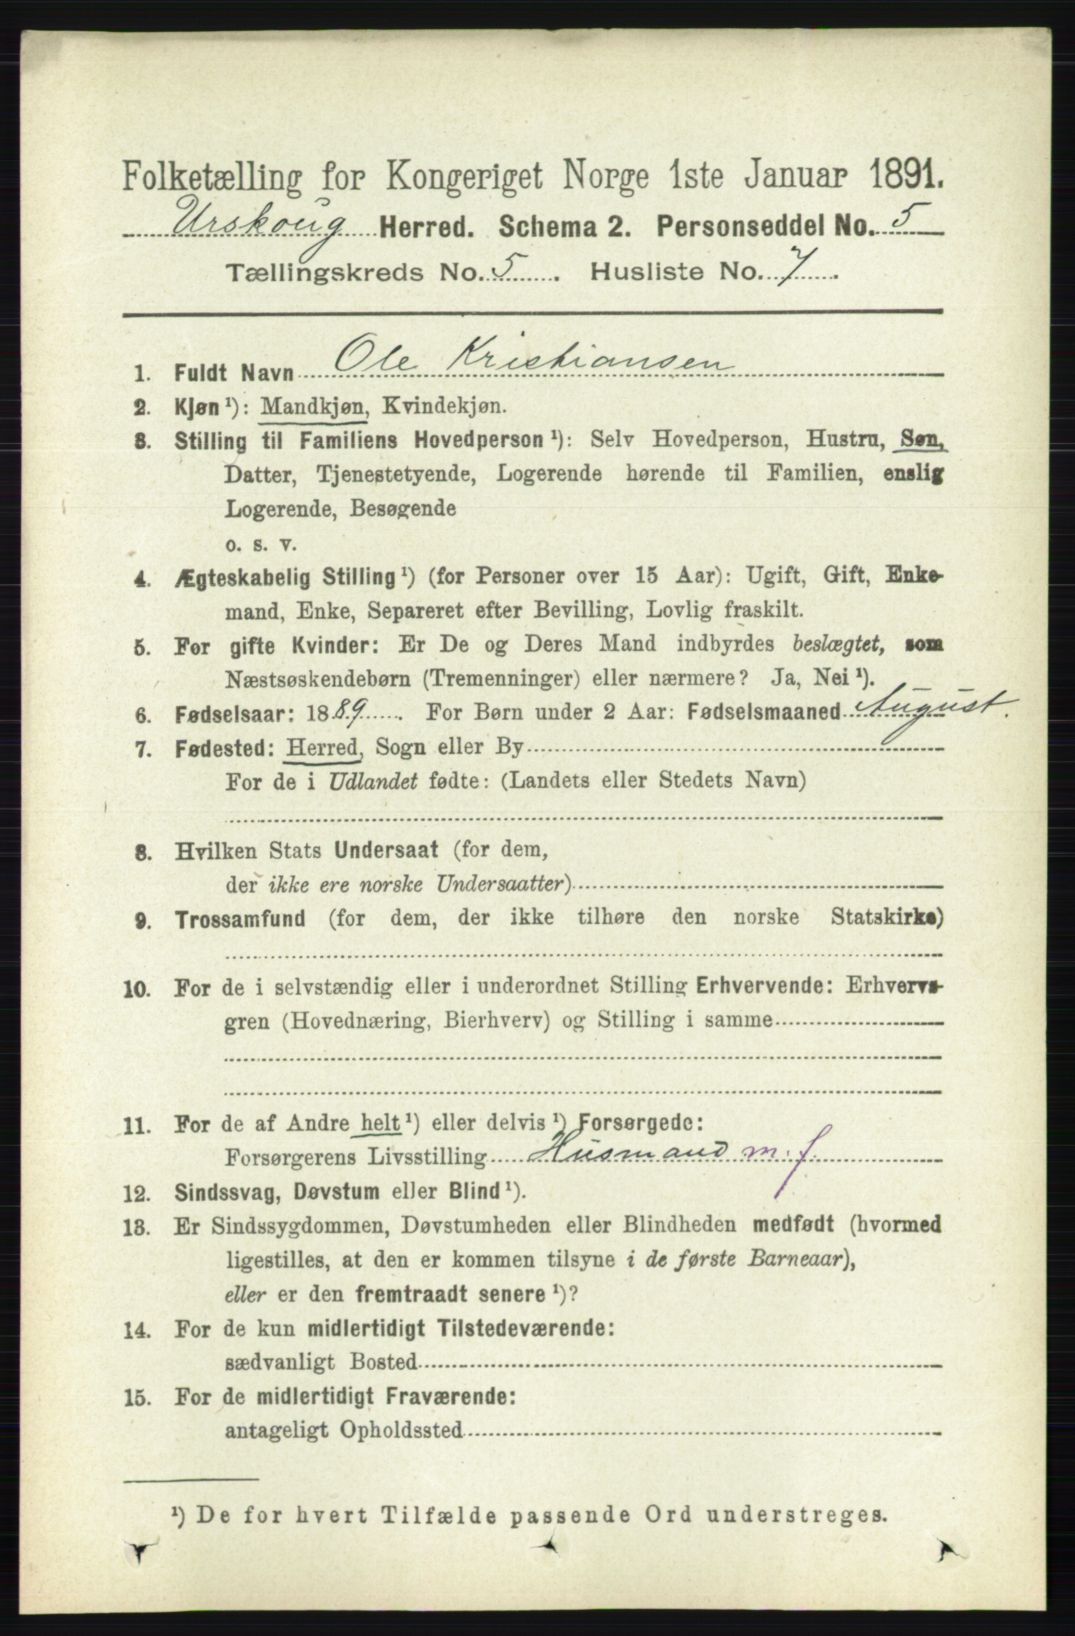 Folketælling for Kongeriget Norge 1ste Januar 1891.
Urskoug Herred. Schema 2. Personseddel No. 5
Tællingskreds No. 5. Husliste No. 7.
1. Fuldt Navn Ole Kristiansen
2. Kjøn ¹): Mandkjøn, Kvindekjøn.
3. Stilling til Familiens Hovedperson ¹): Selv Hovedperson, Hustru, Søn,
Datter, Tjenestetyende, Logerende hørende til Familien, enslig
Logerende, Besøgende
o. s. v.
4. Ægteskabelig Stilling ¹) (for Personer over 15 Aar): Ugift, Gift, Enke-
mand, Enke, Separeret efter Bevilling, Lovlig fraskilt.
5. For gifte Kvinder: Er De og Deres Mand indbyrdes beslægtet, som
Næstsøskendebørn (Tremenninger) eller nærmere? Ja, Nei ¹).
6. Fødselsaar: 1889. For Børn under 2 Aar: Fødselsmaaned August.
7. Fødested: Herred, Sogn eller By
For de i Udlandet fødte: (Landets eller Stedets Navn)
8. Hvilken Stats Undersaat (for dem,
der ikke ere norske Undersaatter)
9. Trossamfund (for dem, der ikke tilhøre den norske Statskirke)
10. For de i selvstændig eller i underordnet Stilling Erhvervende: Erhvervs-
gren (Hovednæring, Bierhverv) og Stilling i samme
11. For de af Andre helt ¹) eller delvis ¹) Forsørgede:
Forsørgerens Livsstilling Husmand m. f.
12. Sindssvag, Døvstum eller Blind ¹).
13. Er Sindssygdommen, Døvstumheden eller Blindheden medfødt (hvormed
ligestilles, at den er kommen tilsyne i de første Barneaar),
eller er den fremtraadt senere ¹)?
14. For de kun midlertidigt Tilstedeværende:
sædvanligt Bosted
15. For de midlertidigt Fraværende:
antageligt Opholdssted
¹) De for hvert Tilfælde passende Ord understreges.